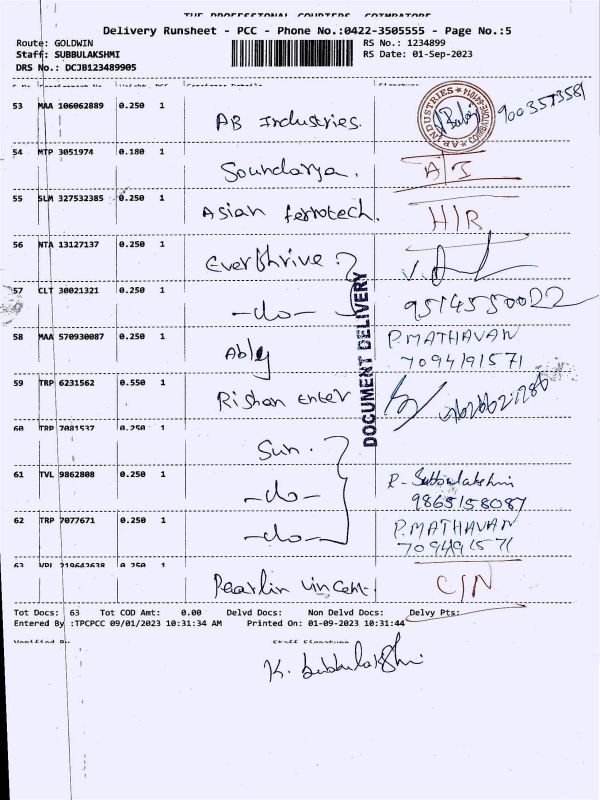 THE PROFESSIONAL COURIERS, COIMBATORE
Delivery Runsheet - PCC - Phone No.:0422-3505555 - Page No.:5
Route: GOLDWIN RS No.: 1234899
Staff: SUBBULAKSHMI RS Date: 01-Sep-2023
DRS No.: DCJB123489905
53 MAA 106062889 0.250 1 AB Industries. 9003573581
54 MTP 3051974 0.180 1 Soundarya. A/I
55 SLM 327532385 0.250 1 Asian ferrotech. H/R
56 NTA 13127137 0.250 1 Everthrive.
57 CLT 30021321 0.250 1 -do- 9514550022
DOCUMENT DELIVERY
58 MAA 570930087 0.250 1 Ably P.MATHAVAN
7094191571
59 TRP 6231562 0.550 1 Rishan enter
60 TRP 7081537 0.250 1 Sun.
61 TVL 9862808 0.250 1 -do- R-Subbulakshmi
9865158087
62 TRP 7077671 0.250 1 -do- P.MATHAVAN
7094191571
63 VPI 219642638 0.250 1 Pearlin vincent. C/N
Tot Docs: 63 Tot COD Amt: 0.00 Delvd Docs: Non Delvd Docs: Delvy Pts:
Entered By :TPCPCC 09/01/2023 10:31:34 AM Printed On: 01-09-2023 10:31:44
Verified By Staff Signature
K. Subbulakshmi